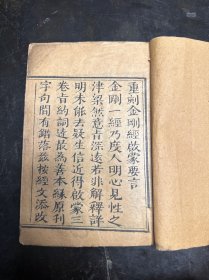 重刻金剛經啟蒙要言
金剛一經乃度人明心見性之
津梁然意旨深遠若非解釋詳
明未能去疑生信近得啟蒙三
卷旨約詞近最為善本緣原刊
字句間有錯落茲按經文添改